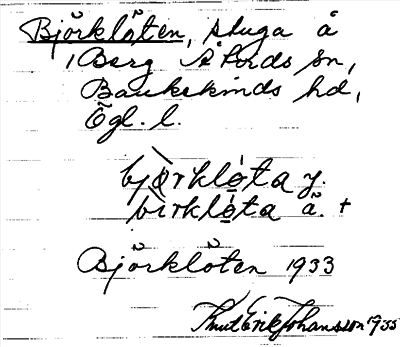 Björklöten, stuga å
Berg Åtvids sn,
Bankekinds hd,
Ögl. l.
bjòrklóta y.
bìrklóta ä. +
Björklöten 1933
Knut Erik Johansson 1933